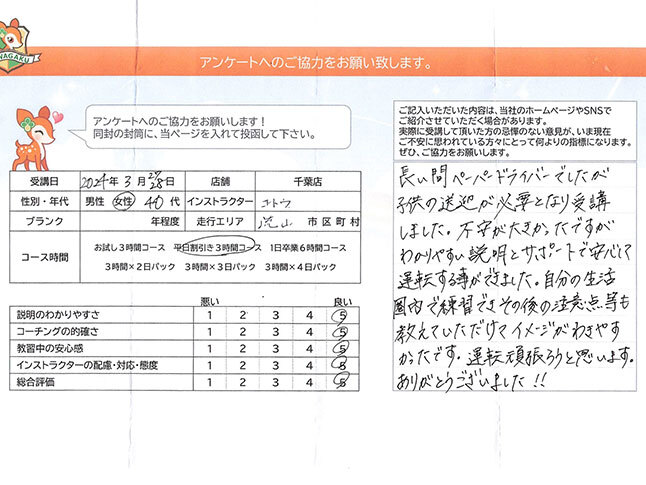 WAGAKU
アンケートへのご協力をお願い致します。
アンケートへのご協力をお願いします！
同封の封筒に、当ページを入れて投函して下さい。
受講日 2024年 3月 27/28日 店舗 千葉店
性別・年代 男性 女性 40代 インストラクター
ブランク 年程度 走行エリア 流山 市区町村
コース時間 お試し3時間コース 平日割引き3時間コース 1日卒業6時間コース
3時間×2日パック 3時間×3日パック 3時間×4日パック
悪い 良い
説明のわかりやすさ 1 2 3 4 5
コーチングの的確さ 1 2 3 4 5
教習中の安心感 1 2 3 4 5
インストラクターの配慮・対応・態度 1 2 3 4 5
総合評価 1 2 3 4 5
ご記入いただいた内容は、当社のホームページやSNSで
ご紹介させていただく場合があります。
実際に受講して頂いた方の忌憚のない意見が、いま現在
ご不安に思われている方々にとって何よりの指標になります。
ぜひ、ご協力をお願いします。
長い間ペーパードライバーでしたが
子供の送迎が必要となり受講
しました。不安が大きかったですが
わかりやすい説明とサポートで安心して
運転する事ができました。自分の生活
圏内で練習できその後の注意点等も
教えていただけてイメージがわきやす
かったです。運転頑張ろうと思います。
ありがとうございました!!